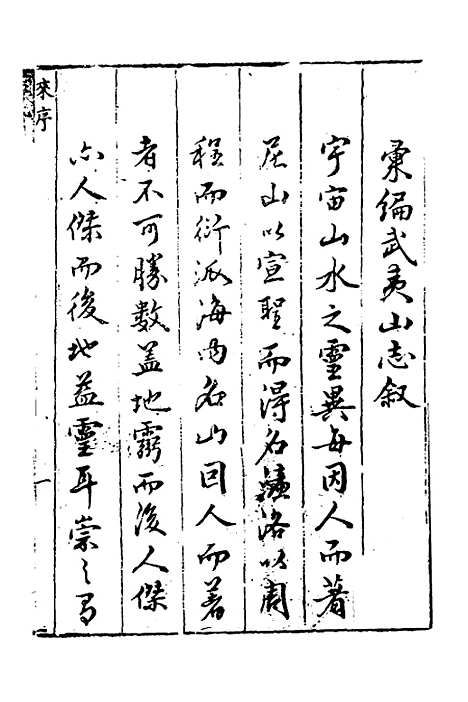 彙編武夷山志叙
宇宙山水之靈異每因人而著
尼山以宣聖而得名濂洛以周
程而衍派海內名山因人而著
者不可勝數盖地靈而後人傑
亦人傑而後地益靈耳崇之有
來序
一